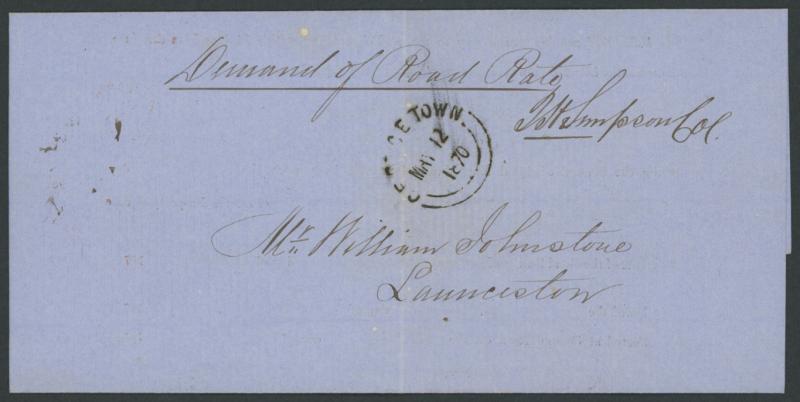 Demand of Road Rate
Simpson Col.
GEORGE TOWN.
MAY 12
1870
Mr William Johnstone
Launceston